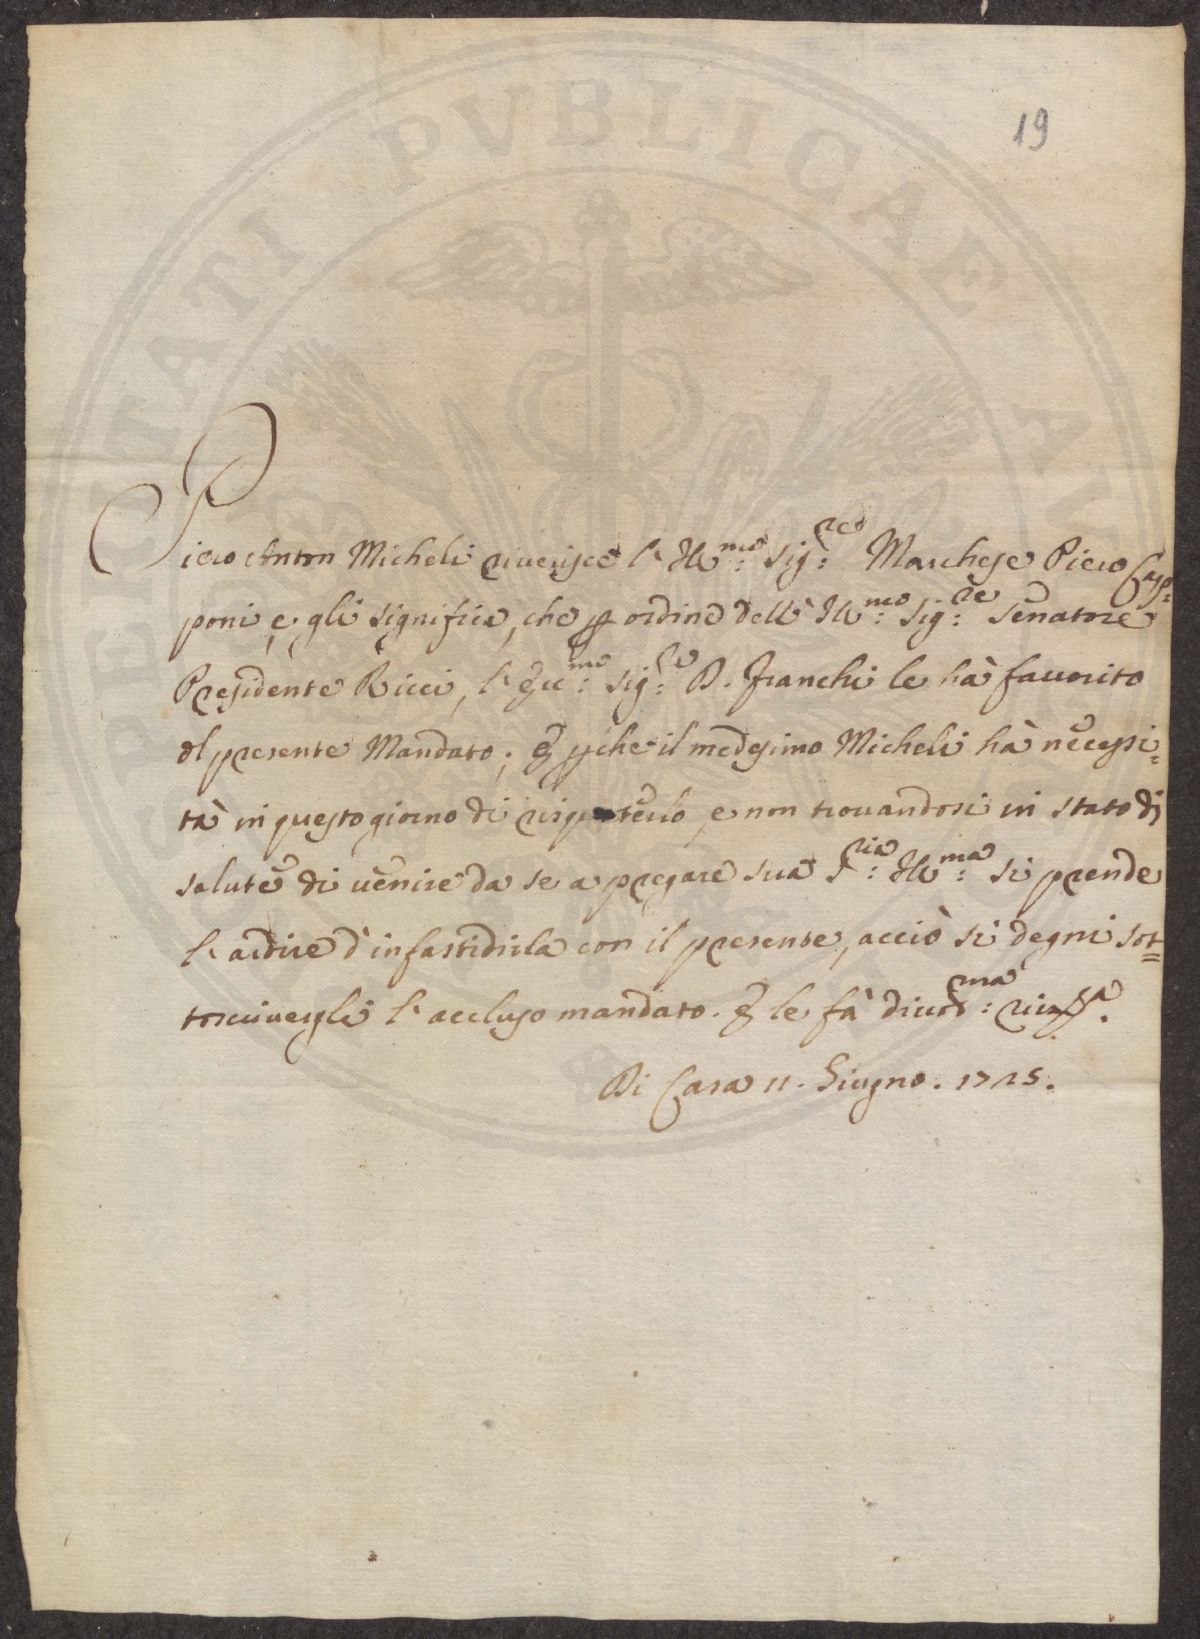 19
Piero Anton Micheli riverisce l' Ill.mo Sig.re Marchese Piero Cap=
poni, e gli significa, che p ordine dell' Ill.mo Sig.re Senatore
Presidente Ricci, l' Ecc.mo Sig.re D. Franchi le hà favorito
Il presente Mandato; E pche il medesimo Micheli hà necessi=
tà in questo giorno di risquoterlo, e non trovandosi in stato di
salute di venire da se a pregare sua S.ria Ill.ma si prende
l' ardire d' infastidirla con il presente, acciò si degni sot=
toscrivergli l' accluso mandato. E le fà divot.ma
Di Casa 11. Giugno. 1725.
UTILITATI PVBLICAE